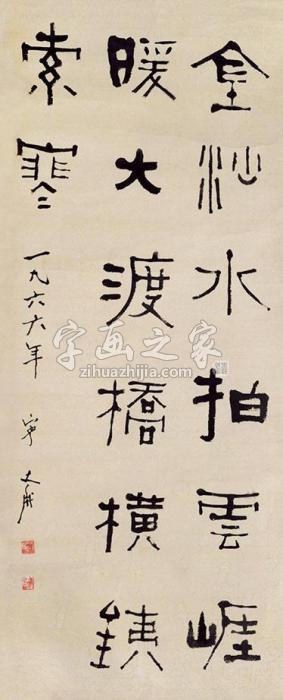 金沙水拍雲崖
暖大渡橋橫鐵
索寒
一九六六年 寧斧成
字画之家
zihuazhijia.com